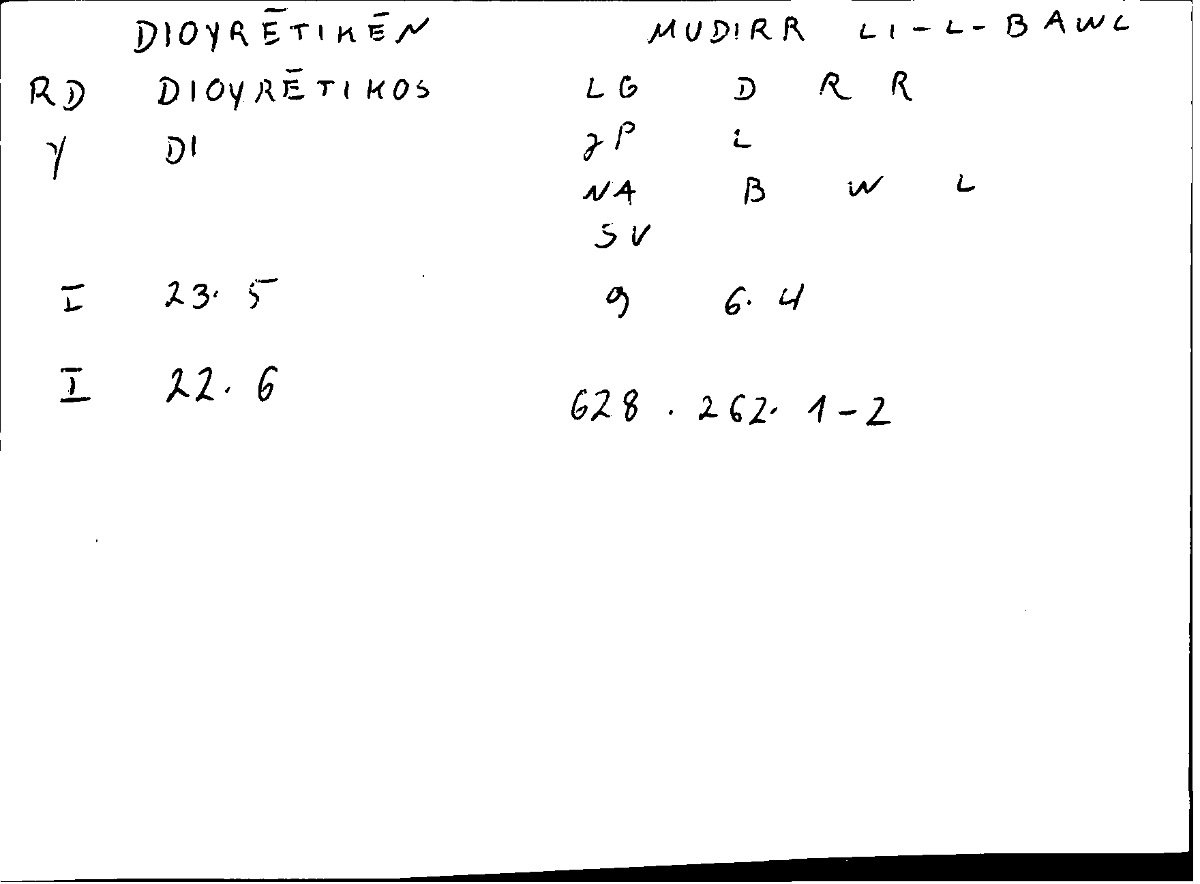 DIOYRĒTIKĒN MUDIRR LI-L-BAWL
RD DIOYRĒTIKOS LG D R R
Y DI JP L
NA B W L
SV
I 23.5 9 6.4
I 22.6
628.262.1-2